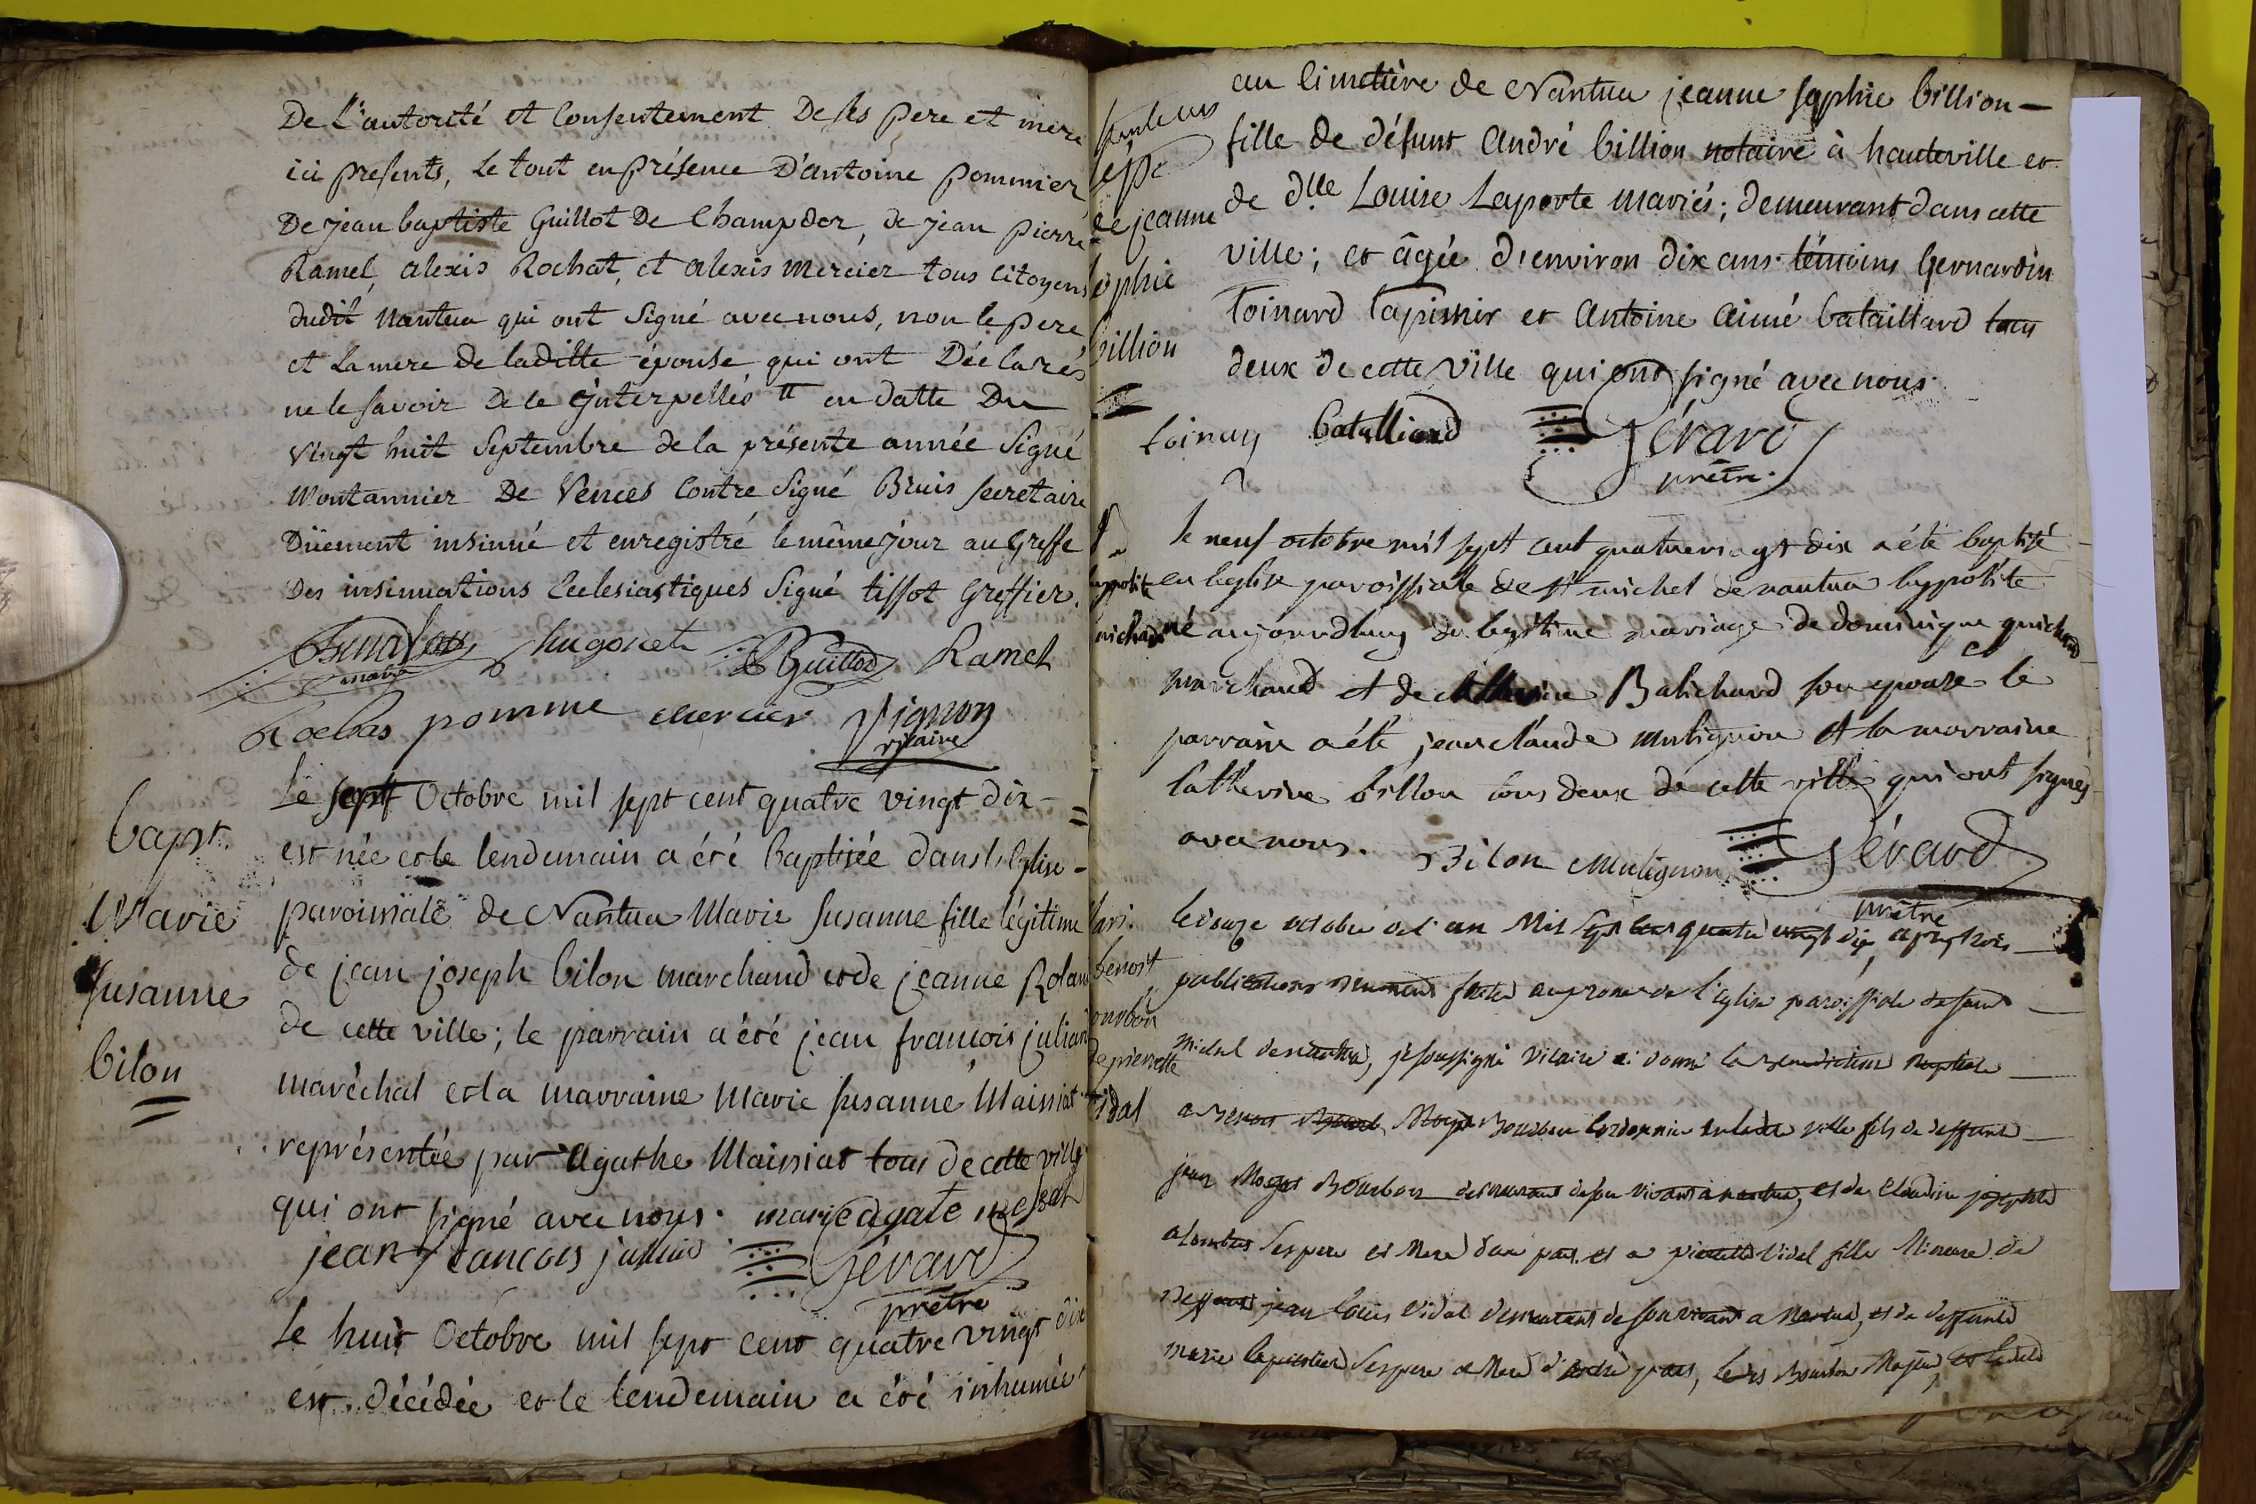 De L'autorité et Consentement De ses pere et mere
ici presents, Le tout en présence D'antoine pommier
De jean baptiste Guillot De Champdor, de jean pierre
Ramel, alexis Rochat, et alexis mercier tous Citoyens
dudit Nantua qui ont Signé avec nous, non le pere
et La mere de laditte épouse qui ont Déclarés
ne le savoir De ce interpellés tt en datte Du
Vingt huit Septembre de la présente année Signé
Montannier De Vences Contre Signé Bruis secretaire
Düement insinué et enregistré le même jour au Greffe
Des insinuations Ecclesiastiques Signé tissot Greffier.
hugonet Guillot Ramel
Rochas pomme mercier Vignon
vicaire
bapt.
Marie
susanne
bilon
Le sept Octobre mil sept cent quatre vingt dix
est née et le lendemain a été baptisée dans l'église
paroissiale de Nantua Marie susanne fille légitime
de jean joseph bilon marchand et de jeanne Rolan
de cette ville; le parrain a été jean françois juliard
maréchal et la marraine Marie susanne Maissiat
représentée par Agathe Maissiat tous de cette ville
qui ont signé avec nous. marie agate messiat
jean francois julliard Gérard
prêtre
Le huit Octobre mil sept cent quatre vingt dix
est décédée et le lendemain a été inhumée
sepe
de jeanne
sophie
billion
au Cimetière de Nantua jeanne sophie billion
fille de défunt André billion notaire à hauteville et
de dlle Louise Laporte mariés; demeurant dans cette
ville; et âgée d'environ dix ans. témoins bernardin
Toinard Tapissier et Antoine Aimé bataillard tous
deux de cette ville qui ont signé avec nous.
toinar batalliard Gérard
prêtre.
hyppolite
guichard
le neuf octobre mil sept cent quatrevingt dix a été baptisé
en l'eglise paroissiale de st michel de nantua hyppolite
né aujourdhuy du legitime mariage de dominique guichard
marchand et de Balichard son epouse le
parrain a été jean claude mulignon et la marraine
Catherine billon tous deux de cette ville qui ont signés
avec nous. Bilon Mulignon Gérard
prêtre
mari.
benoit
bourbon
de pierrette
vidal
le douze octobre de l'an Mil sept cent quatre vingt dix, apres trois
publications duement faites au prone de l'Eglise paroissiale de saint
michel de nantua, je soussigné Vicaire ai donné la Benediction Nuptiale
a Benoit Moyse Bourbon Cordonnier en ladite ville fils de deffunt
jean Bourbon demeurant de son vivant a nantua, et de Claudine josephte
ses pere et Mere d'une part. et a pierrette Vidal fille Mineure de
deffunt jean louis Vidal demeurant de son vivant a Nantua, et de deffunte
marie ses pere et Mere d'autre part, ledit Bourbon Majeur, et ladite